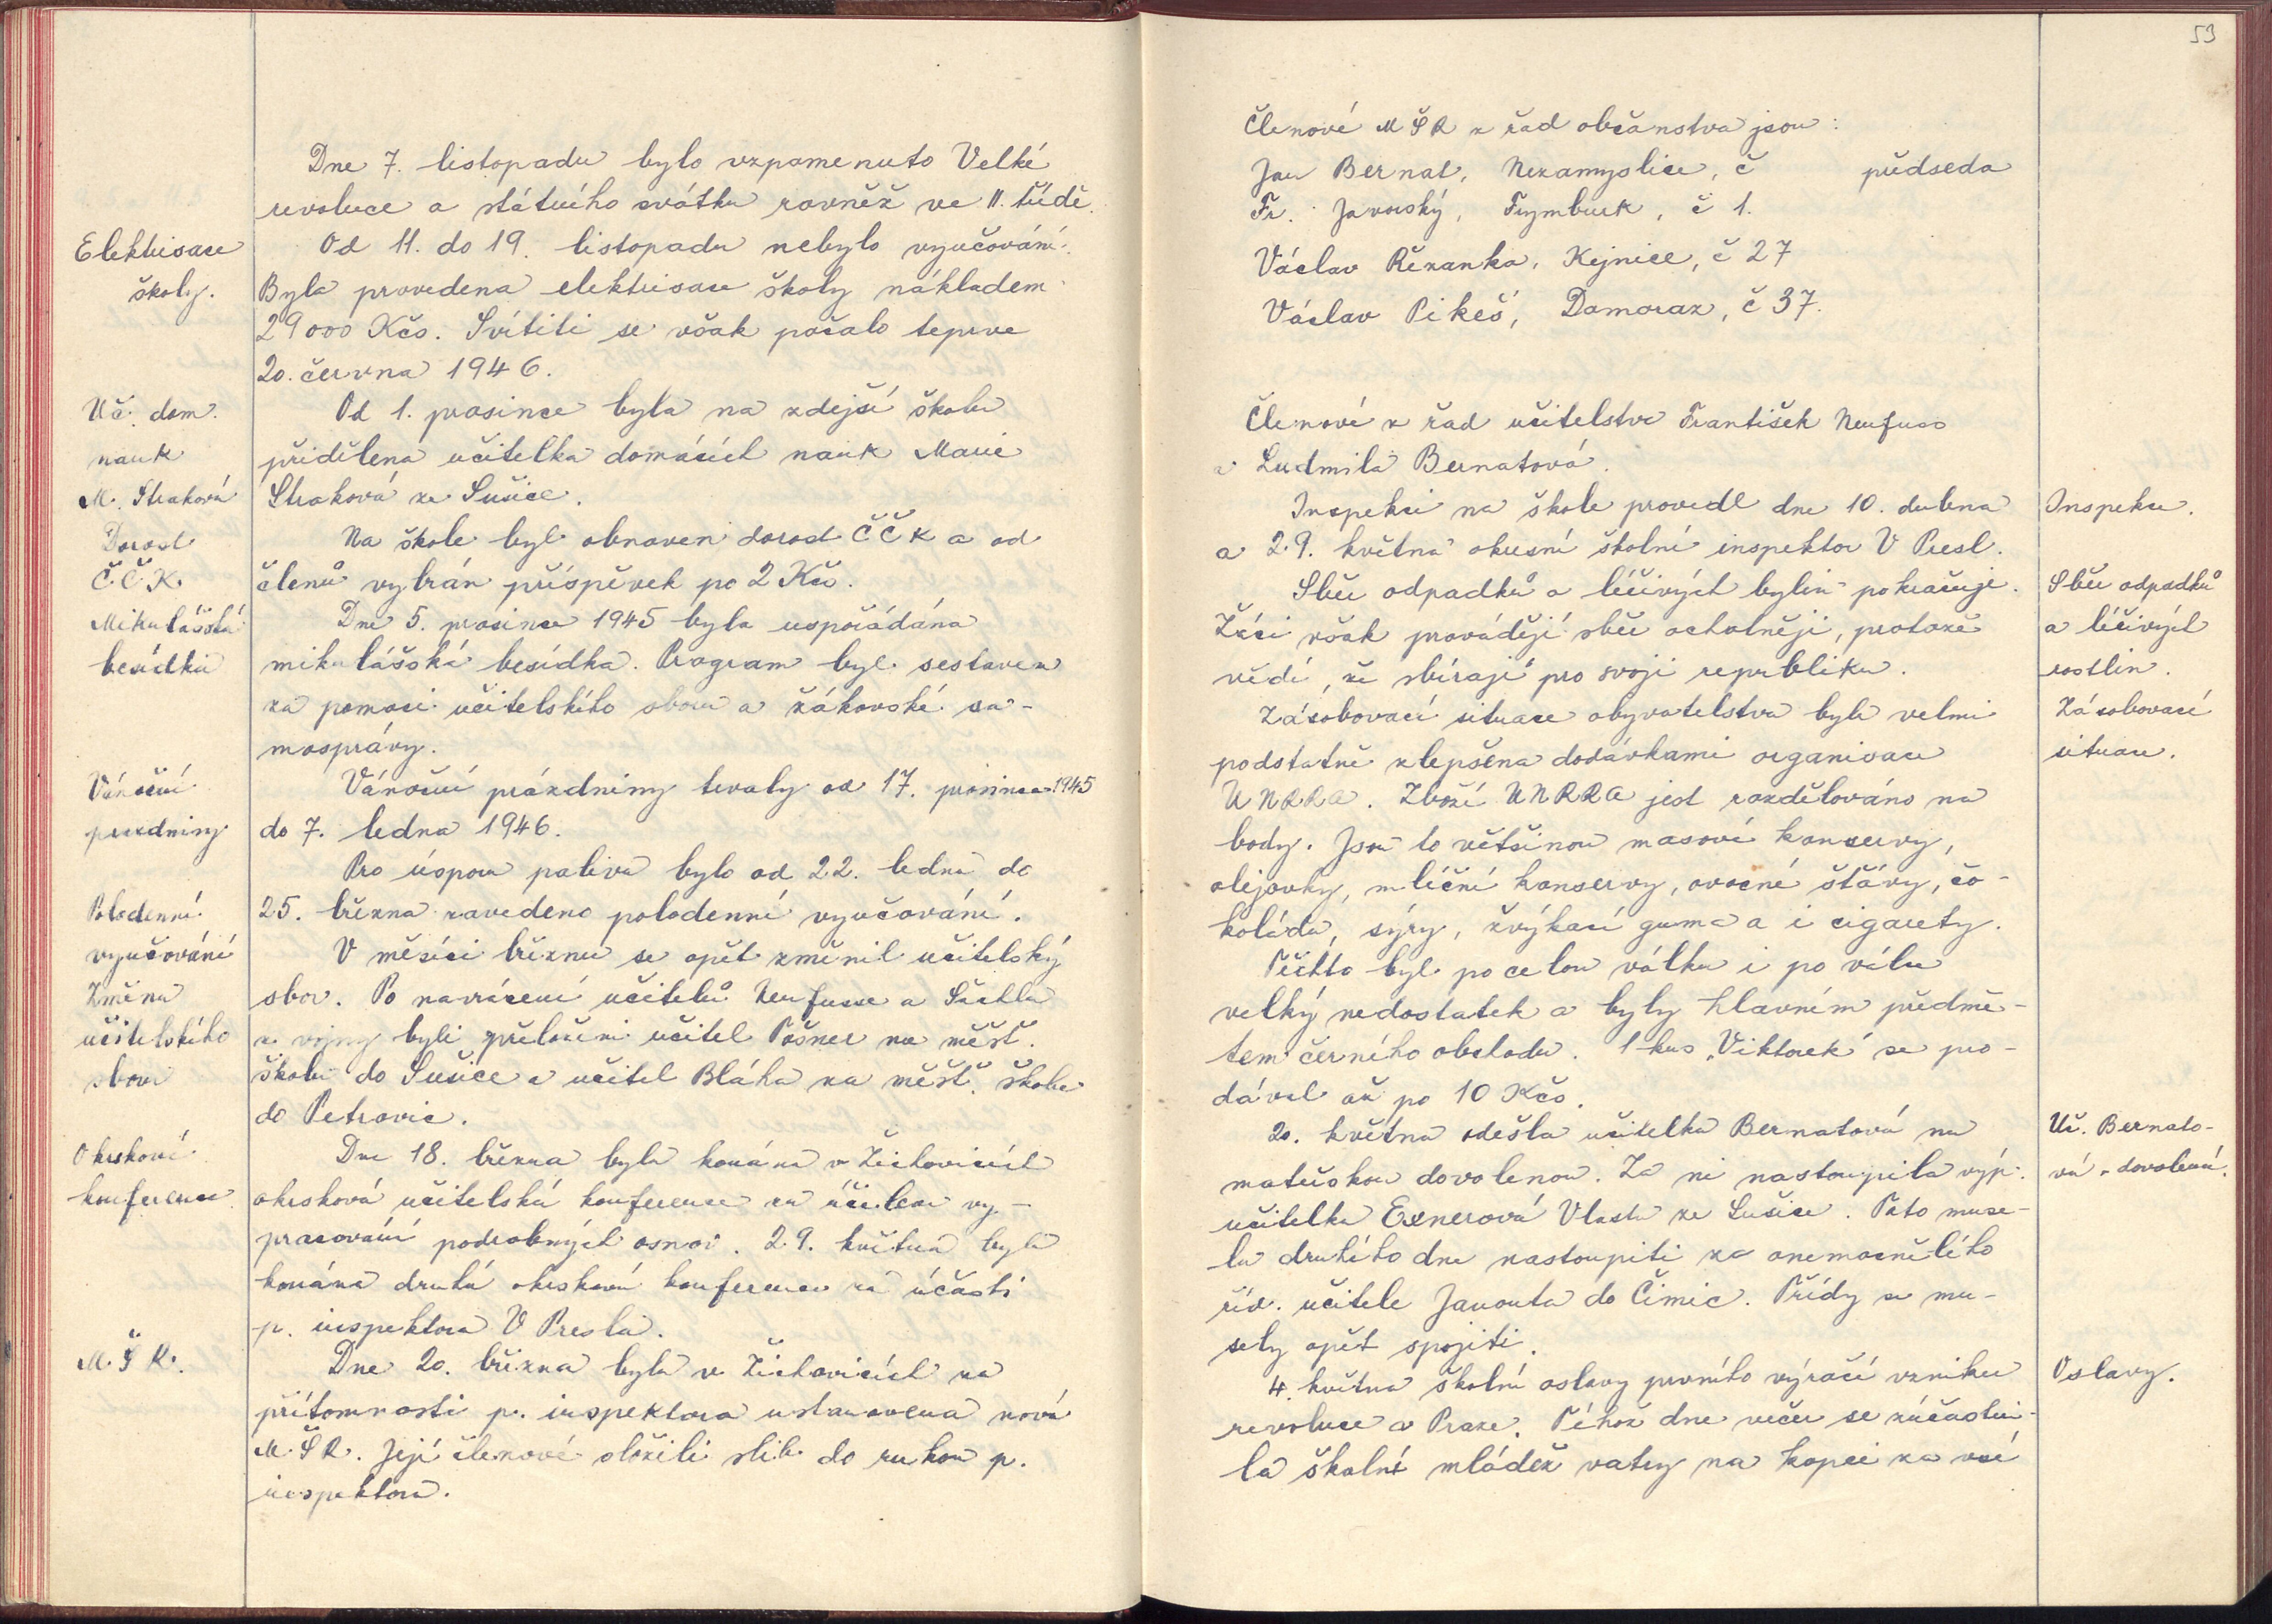 Dne 7. listopadu bylo vzpomenuto Velké
revoluce a státního svátku rovněž ve II. třídě.
Elektrisace
školy.
Od 11. do 19. listopadu nebylo vyučování.
Byla provedena elektrisace školy nákladem
29000 Kčs. Svítiti se však počalo teprve
20. června 1946.
Uč. dom.
nauk
M. Straková
Od 1. prosince byla na zdejší školu
přidělena učitelka domácích nauk Marie
Straková ze Sušice.
Dorost
Č.Č.K.
Na škole byl obnoven dorost ČČK a od
členů vybrán příspěvek po 2 Kčs.
Mikulášská
besídka
Dne 5. prosince 1945 byla uspořádána
mikulášská besídka. Program byl sestaven
za pomoci učitelského sboru a žákovské sa-
mosprávy.
Vánoční
prázdniny
Vánoční prázdniny trvaly od 17. prosince 1945
do 7. ledna 1946.
Polodenní
vyučování
Pro úsporu paliva bylo od 22. ledna do
25. března zavedeno polodenní vyučování.
Změna
učitelského
sboru
V měsíci březnu se opět změnil učitelský
sbor. Po navrácení učitelů Neufusse a
z vojny byli přeloženi učitel Pošner na měšť.
školu do Sušice a učitel Bláha na měšť. školu
do Petrovic.
Okrsková
konference
Dne 18. března byla konána v Žichovicích
okrsková učitelská konference za účelem vy-
pracování podrobných osnov. 29. května byla
konána druhá okrsková konference za účasti
p. inspektora V Presla.
M.Š.R.
Dne 20. března byla v Žichovicích za
přítomnosti p. inspektora ustanovena nová
M.Š.R. Její členové složili slib do rukou p.
inspektora.
53
Členové MŠR z řad občanstva jsou:
Jan Bernat, Nezamyslice, č předseda
Fr. Javorský, Frymburk, č 1.
Václav Řezanka, Kejnice, č 27
Václav Pikeš, Domoraz, č 37.
Členové z řad učitelstva František Neufuss
a Ludmila Bernatová.
Inspekci na škole provedl dne 10. dubna
a 29. května okresní školní inspektor V Presl.
Inspekce.
Sběr odpadků a léčivých bylin pokračuje.
Žáci však provádějí sběr ochotněji, protože
vědí, že sbírají pro svoji republiku.
Sběr odpadků
a léčivých
rostlin.
Zásobovací situace obyvatelstva byla velmi
podstatně zlepšena dodávkami organisace
UNRRA. Zboží UNRRA jest rozdělováno na
body. Jsou to většinou masové konservy,
olejovky, mléčné konservy, ovocné šťávy, čo-
koláda, sýry, žvýkací guma a i cigarety.
Těchto byl po celou válku i po válce
velký nedostatek a byly hlavním předmě-
tem černého obchodu. 1 kus „Viktorek" se pro-
dával až po 10 Kčs.
Zásobovací
situace.
20. května odešla učitelka Bernatová na
mateřskou dovolenou. Za ni nastoupila výp.
učitelka Exnerová Vlasta ze Sušice. Tato muse-
la druhého dne nastoupiti za onemocnělého
říd. učitele Janouta do Čimic. Třídy se mu-
sely opět spojiti.
Uč. Bernato-
vá - dovolená.
4. května školní oslavy prvního výročí vzniku
revoluce v Praze. Téhož dne večer se zúčastni-
la školní mládež vatry na kopci za vsí
Oslavy.